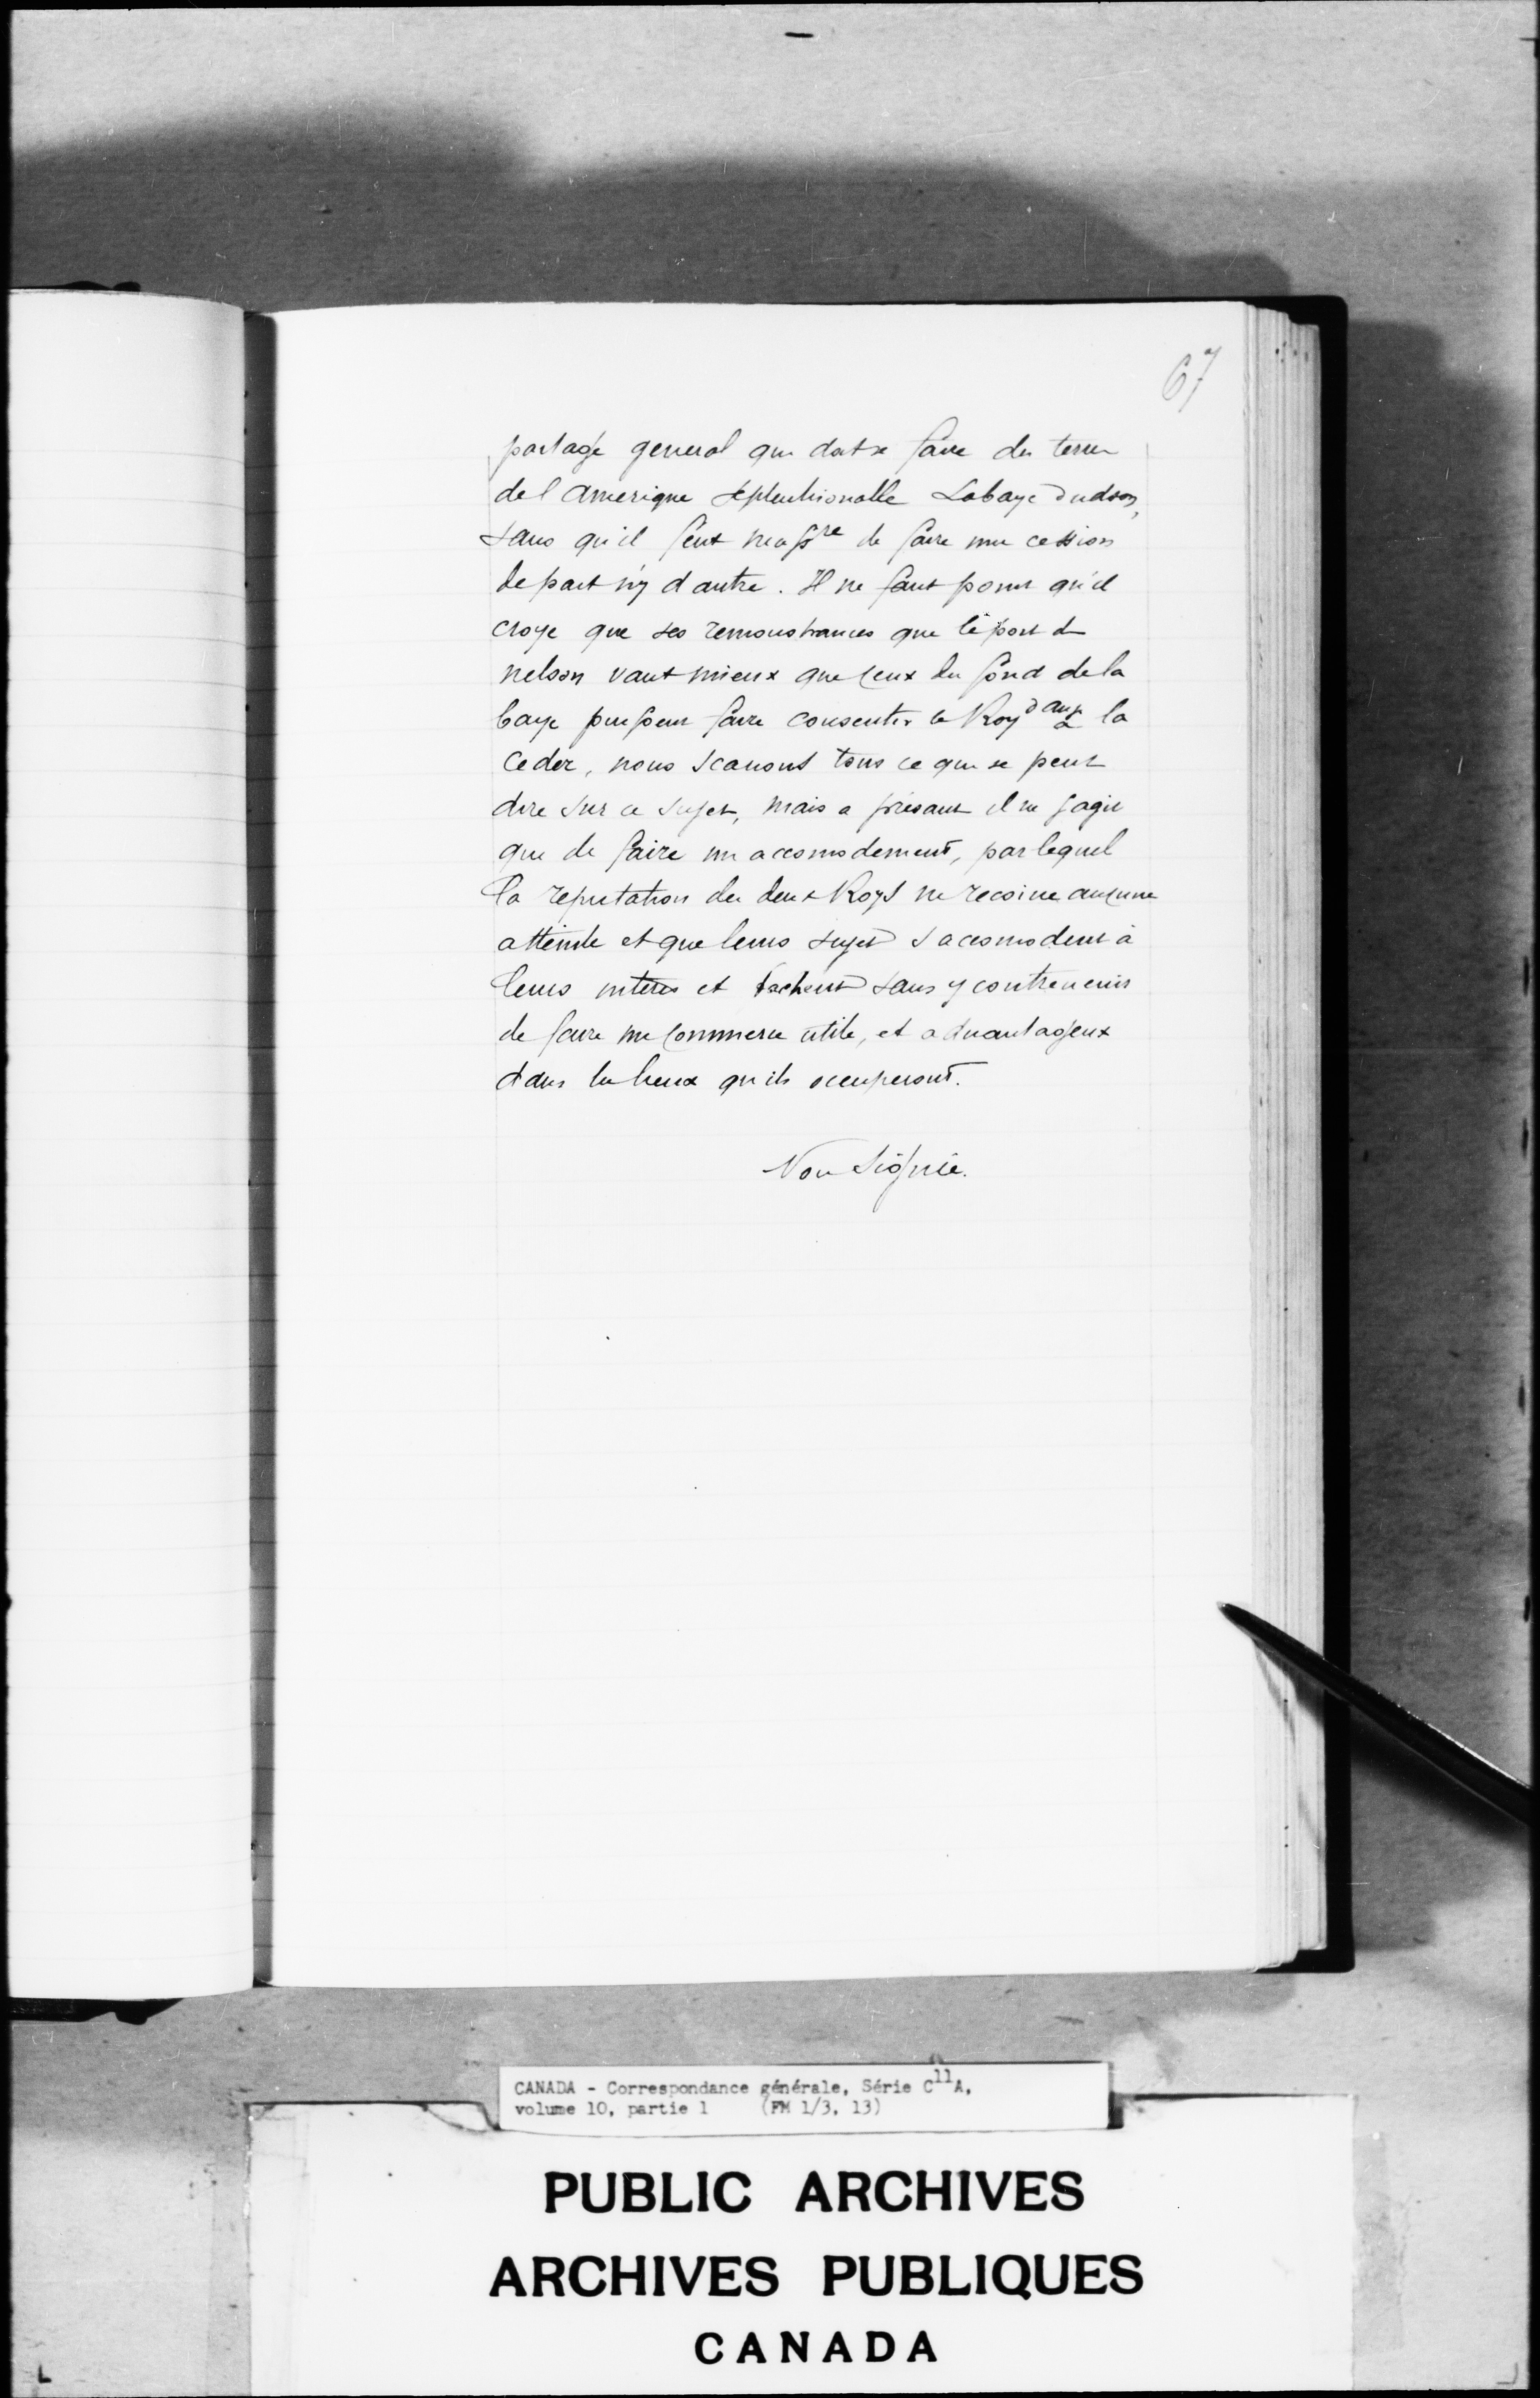 67
partage general qui doit se faire des terres
del Amerique septentrionalle Labaye dudson,
sans qu'il soit necessre de faire une cession
de part n'y d'autre. Il ne faut point qu'il
croye que ses remonstrances que le port de
nelson vaut mieux que ceux du fond dela
baye puissent faire consentir le Roy dang a la
ceder, nous scauons tous ce qui se peut
dire sur ce sujet, mais a présant il ne s'agit
que de faire un accomodement, par lequel
la reputation des deux Roys ne recoiue aucune
atteinte et que leurs sujets s'accomodent à
leurs interes et tachent sans y contreuenir
de faire un commerce utile, et aduantageux
dans les lieux qu'ils occuperont.
Non Signé.
CANADA - Correspondance générale, Série C11A,
volume 10, partie 1 (FM 1/3, 13)
PUBLIC ARCHIVES
ARCHIVES PUBLIQUES
CANADA